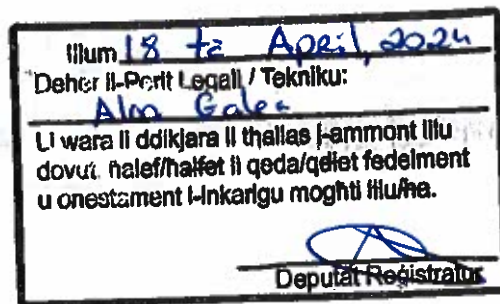 Illum 18 ta April, 2024
Deher il-Perit Legali / Tekniku:
Galea
Li wara li ddikjara li tħallas l-ammont lilu
dovut, ħalef/ħalfet li qeda/qdiet fedelment
u onestament l-inkarigu mogħti lilu/ha.
Deputat Reġistratur